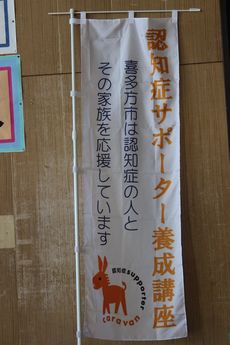 認知症サポーター養成講座
喜多方市は認知症の人と
その家族を応援しています
認知症supporter
caravan